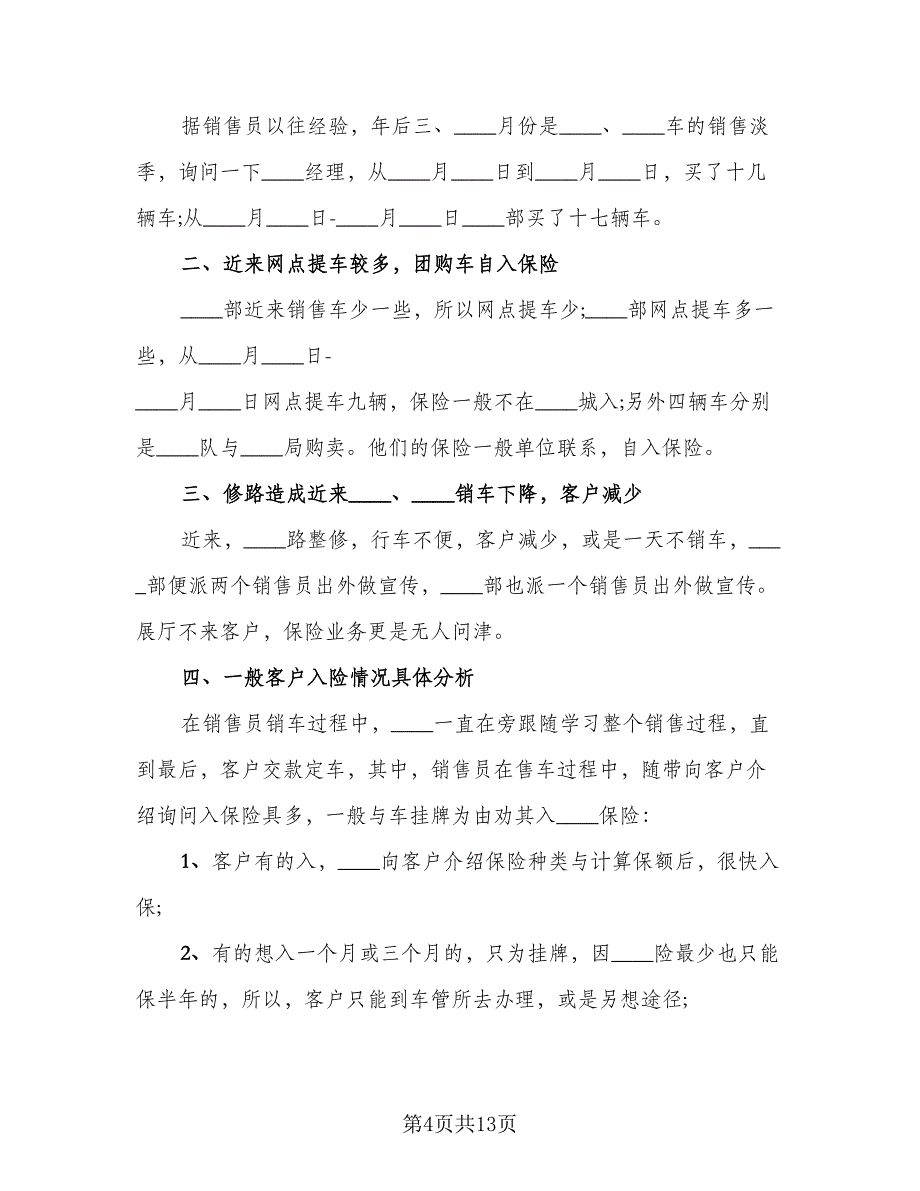 据销售员以往经验，年后三、____月份是____、____车的销售淡
季，询问一下____经理，从____月____日到____月____日，买了十几
辆车;从____月____日-____月____日____部买了十七辆车。
二、近来网点提车较多，团购车自入保险
____部近来销售车少一些，所以网点提车少;____部网点提车多一
些，从____月____日-
____月____日网点提车九辆，保险一般不在____城入;另外四辆车分别
是____队与____局购卖。他们的保险一般单位联系，自入保险。
三、修路造成近来____、____销车下降，客户减少
近来，____路整修，行车不便，客户减少，或是一天不销车，___
_部便派两个销售员出外做宣传，____部也派一个销售员出外做宣传。
展厅不来客户，保险业务更是无人问津。
四、一般客户入险情况具体分析
在销售员销车过程中，____一直在旁跟随学习整个销售过程，直
到最后，客户交款定车，其中，销售员在售车过程中，随带向客户介
绍询问入保险具多，一般与车挂牌为由劝其入____保险：
1、客户有的入，____向客户介绍保险种类与计算保额后，很快入
保;
2、有的想入一个月或三个月的，只为挂牌，因____险最少也只能
保半年的，所以，客户只能到车管所去办理，或是另想途径;
第4页共13页